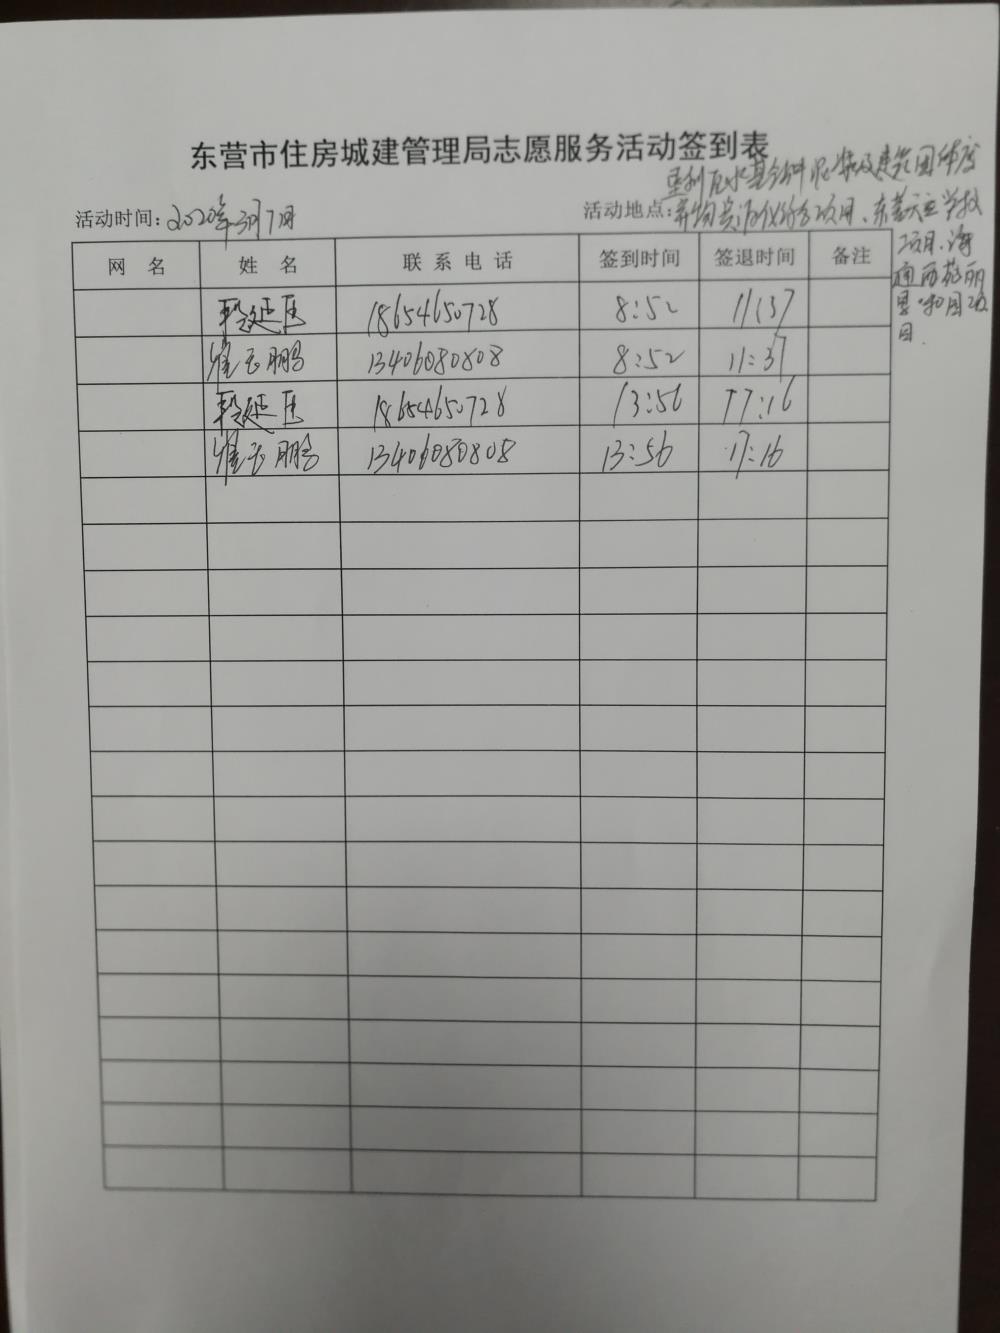 东营市住房城建管理局志愿服务活动签到表
活动时间: 2020年3月7日
活动地点: 项目、东营天立学校
项目、海
通
目.
网 名 姓 名 联系电话 签到时间 签退时间 备注
段延 18654650728 8:52 11:37
崔云鹏 13406080808 8:52 11:37
段延 18654650728 13:56 17:16
崔云鹏 13406080808 13:56 17:16